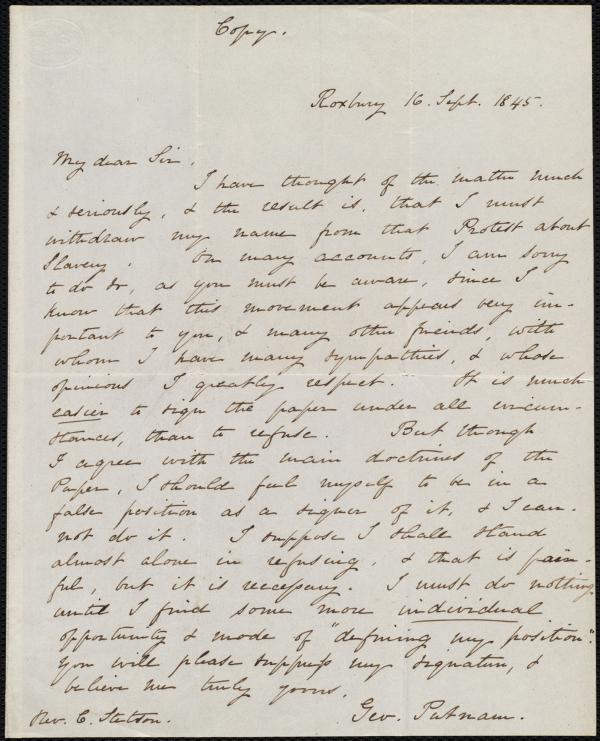 Copy.
Roxbury 16. Sept. 1845.
My dear Sir,
I have thought of the matter much
& seriously, & the result is, that I must
withdraw my name from that Protest about
Slavery. On many accounts, I am sorry
to do so, as you must be aware, since I
know that this movement appears very im-
portant to you, & many other friends, with
whom I have many sympathies, & whose
opinions I greatly respect. It is much
easier to sign the paper under all circum-
stances, than to refuse. But though
I agree with the main doctrines of the
Paper, I should feel myself to be in a
false position as a signer of it, & I can-
not do it. I suppose I shall stand
almost alone in refusing, & that is pain-
ful, but it is necessary. I must do nothing
until I find some more individual
opportunity & mode of "defining my position".
You will please suppress my signature, &
believe me truly yours,
Geo. Putnam.
Rev. C. Stetson.